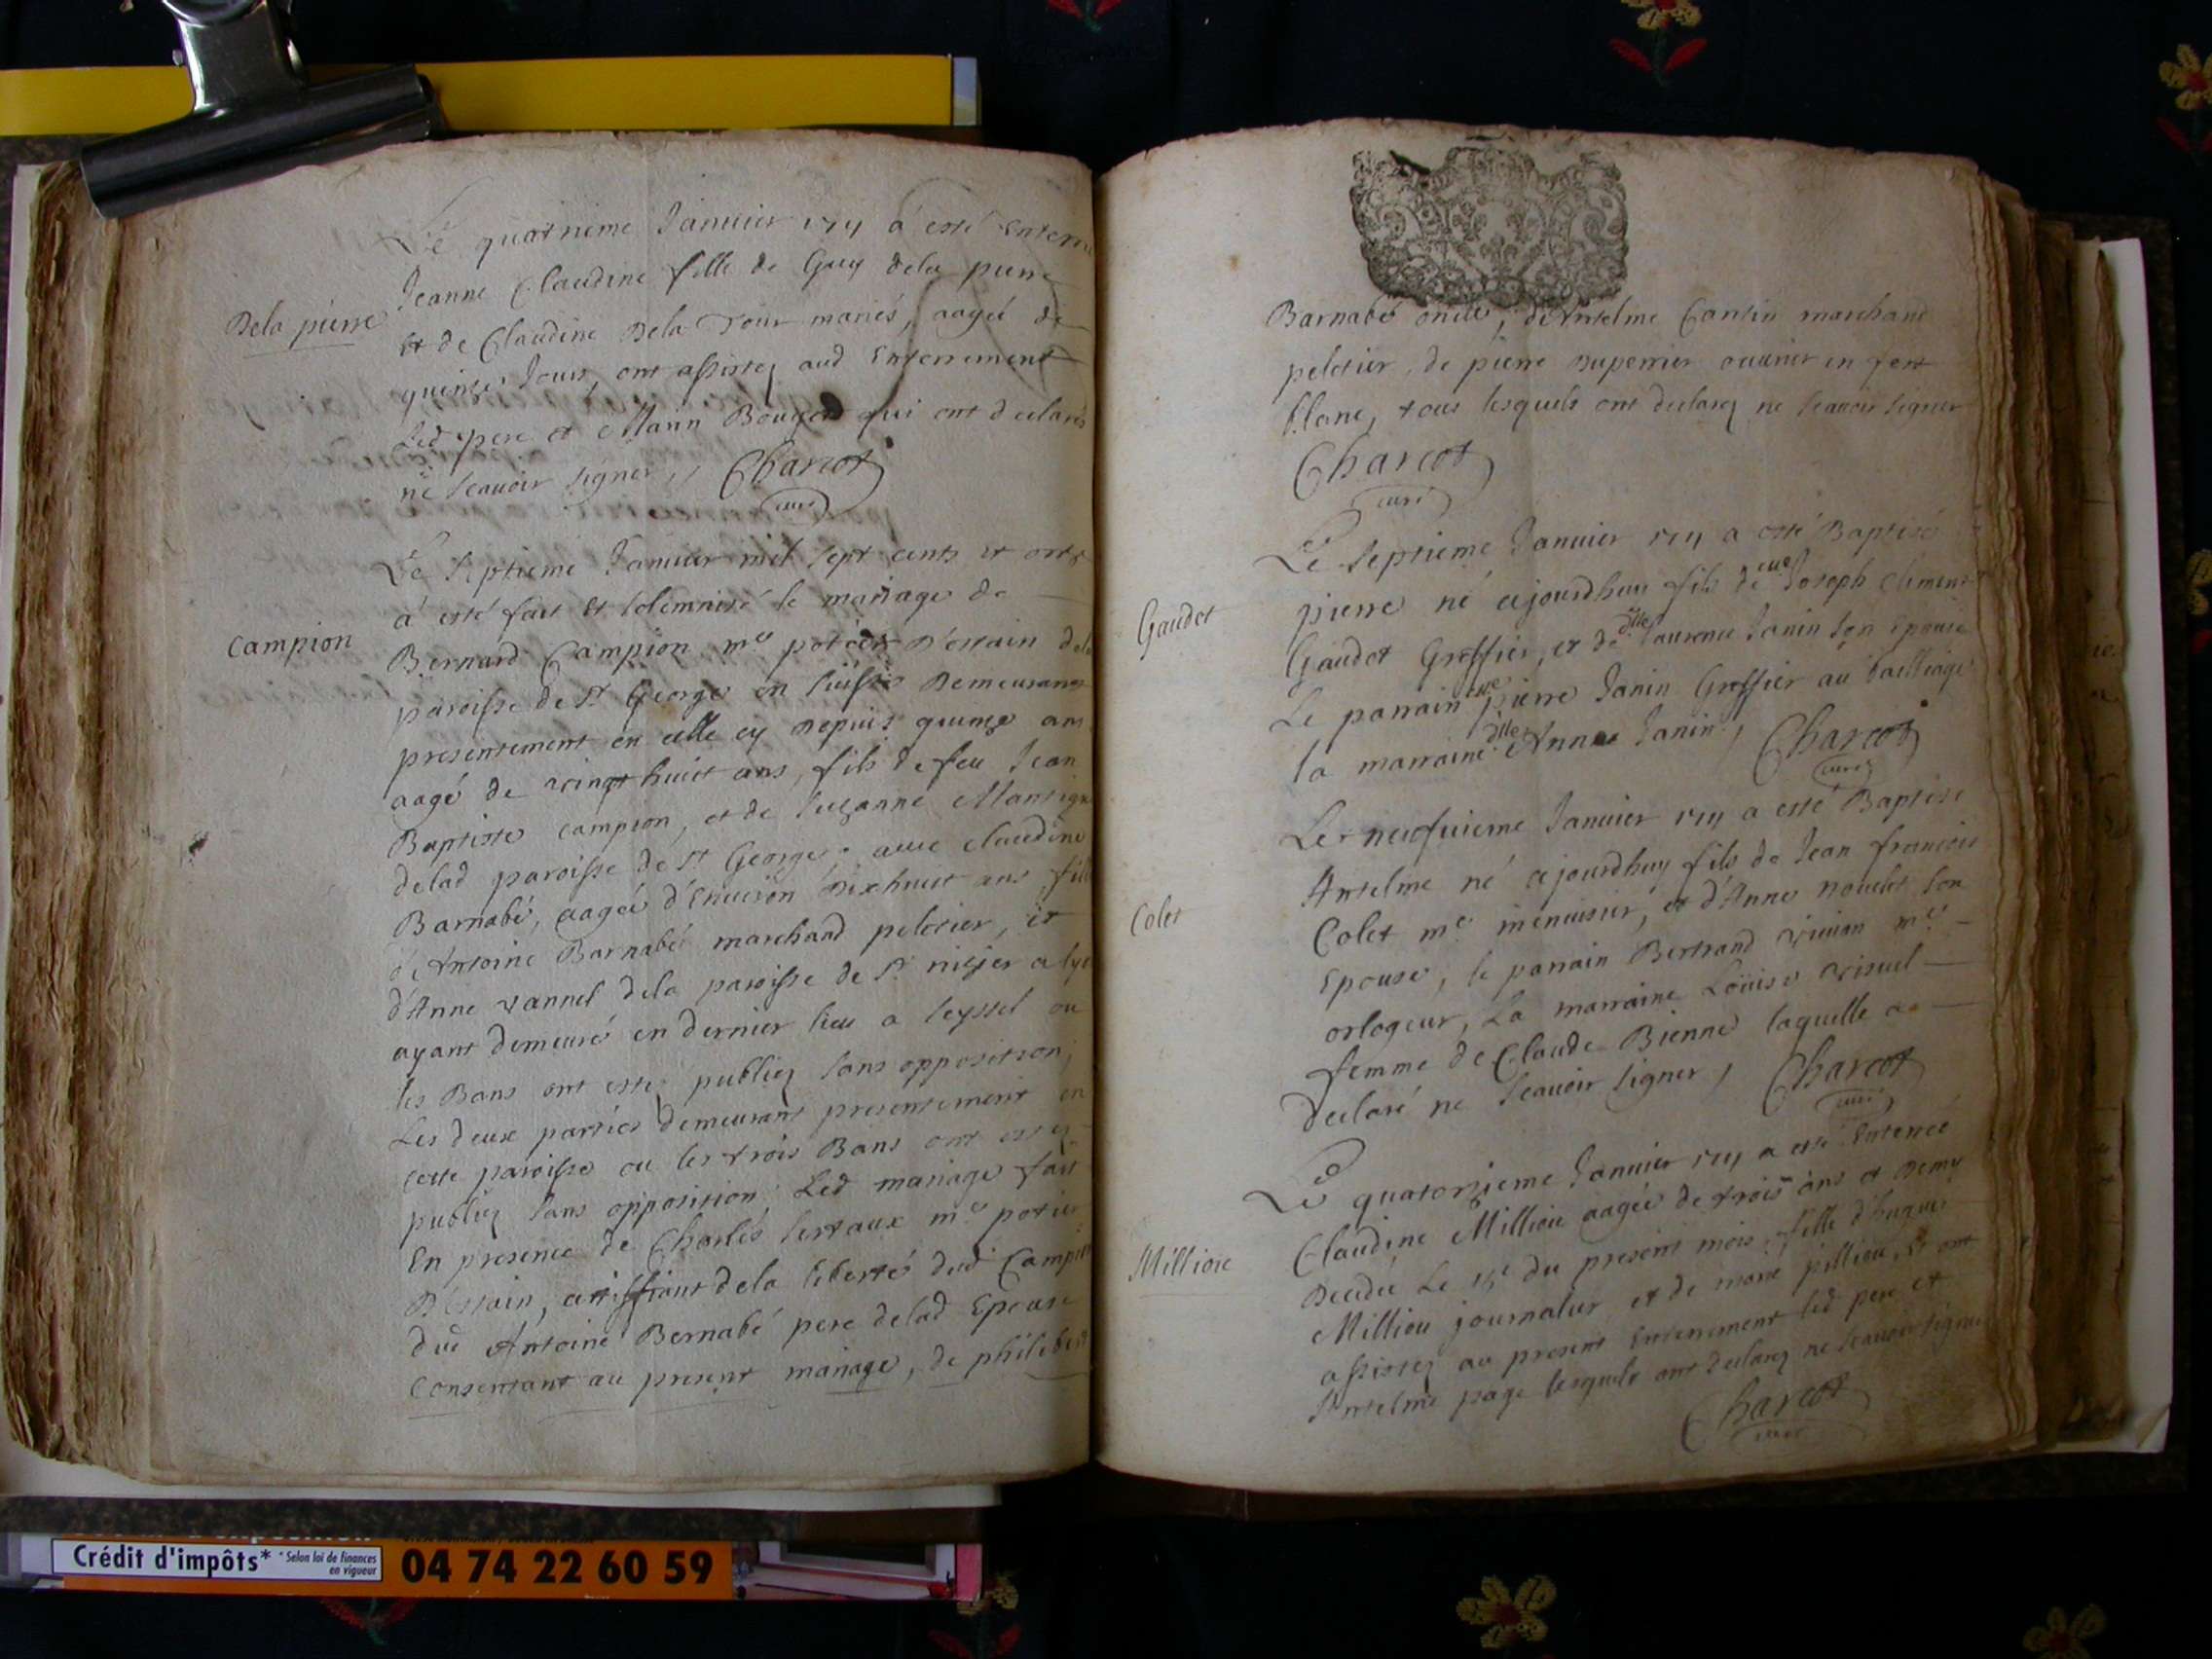 Le quatrieme Januier 1711 a esté Enterré
Jeanne Claudine fille de Guy dela pierre
Dela pierre
et de Claudine Dela Tour mariés, aageé de
quinze Jours, ont assistez aud Enterrement
Led pere et qui ont declarés
ne scauoir signer,, Charcot
curé
Le septieme Januier mil sept cents et onze
à esté fait et solemnisé le mariage de
Campion
Bernard Campion me potier D'estain dela
paroisse de St George en suisse Demeurant
presentement en celle cy Depuis quinze ans
aagé de vingt huict ans, fils de feu Jean
Baptiste campion, et de Suzanne
delad paroisse de St George, auec claudine
Barnabé, aageé d'Enuiron dixhuict ans, fille
d'Antoine Barnabé marchand peletier, et
d'Anne vannel dela paroisse de St nisier a lyon
ayant demeuré en dernier lieu a seyssel ou
les Bans ont estez publiez sans opposition,
Les deux parties demeurant presentement en
cette paroisse ou les trois Bans ont estez
publiez sans opposition; Led mariage fait
En presence de Charles me potier
D'estain, dela liberté dud Campion
dud Antoine Bernabé pere delad Epouse
Consentant au present mariage, de philibert
Barnabé oncle, d'Antelme Cantin marchand
peletier, de pierre Duperrier ouurier en fert
blanc, tous lesquels ont declarez ne scauoir signer
Charcot
curé
Le septieme Januier 1711 a esté Baptisé
pierre né cejourdhuy fils de Joseph Clement
Gaudet
Gaudet Greffier, et de dlle laurence Janin son epouse
Le parrain pierre Janin Greffier au bailliage
la marraine dlle Anne Janin, Charcot
curé
Le neufuieme Januier 1711 a esté Baptisé
Antelme né cejourdhuy fils de Jean francois
Colet
Colet me menuisier, et d'Anne son
Epouse, le parrain Bertrand viuian me
orlogeur, La marraine Loüise
femme de Claude Bienne laquelle a
declaré ne scauoir signer, Charcot
curé
Le quatorzieme Januier 1711 a esté Enterreé
Claudine Milliou aageé de trois ans et Demy
Milliou
Decedeé Le du present mois, fille d'hugues
Milliou journalier, et de marie pilliou, et ont
assistez au present Enterrement led pere et
Antelme page lesquels ont declarez ne scauoir signer
Charcot
curé
Crédit d'impôts* *Selon loi de finances
en vigueur
04 74 22 60 59